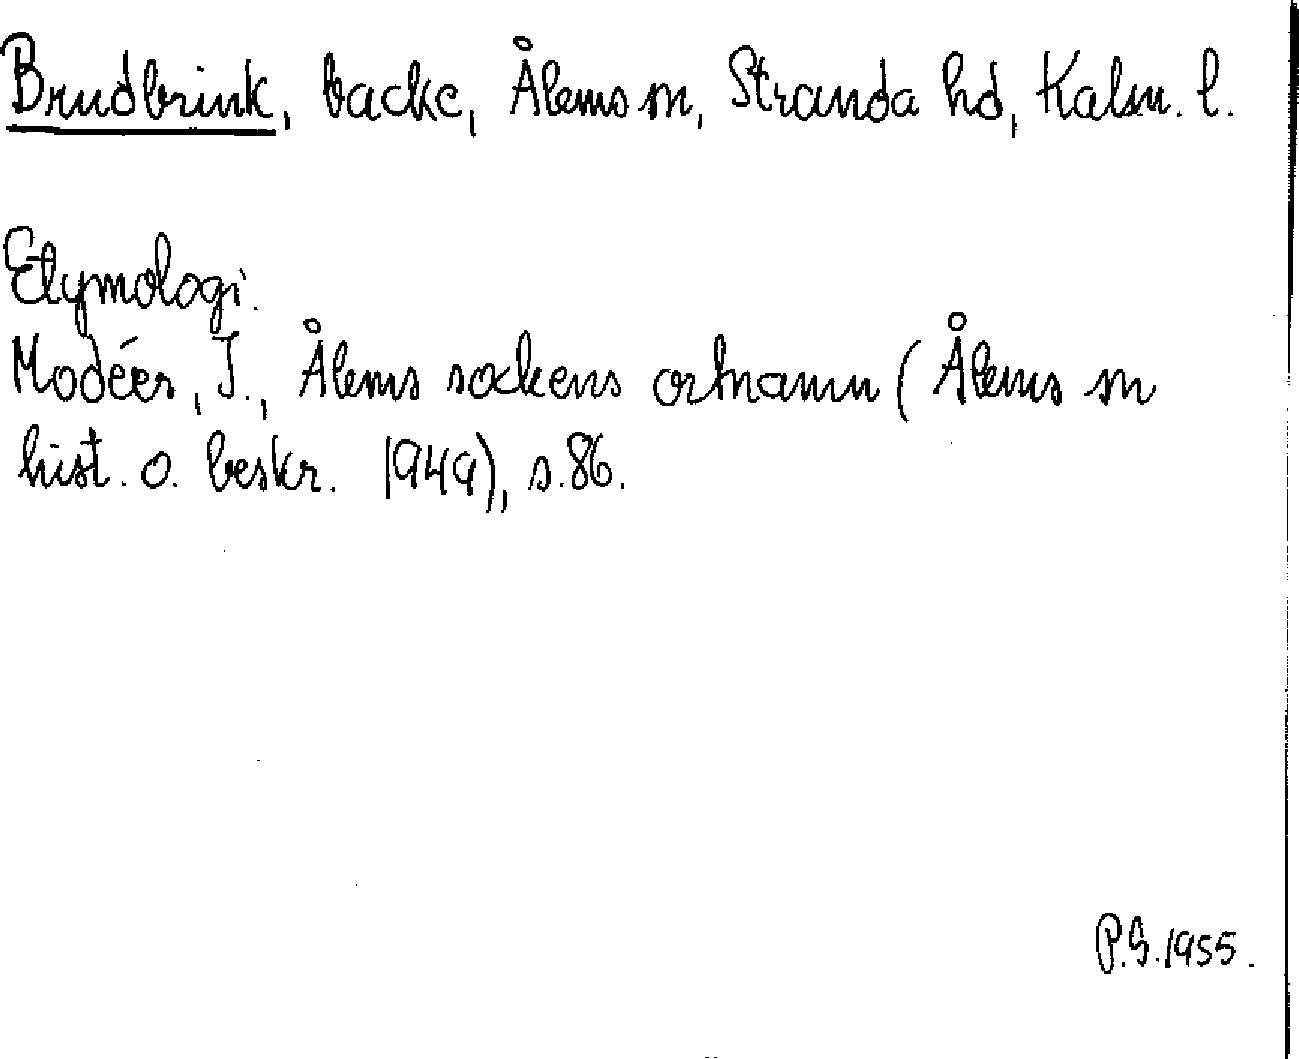 Brudbrink, backe, Ålems sn, Stranda hd, Kalm. l.
Etymologi.
Modéer, I., Ålems sockens ortnamn (Ålems sn
hist. o. beskr. 1949), s.86.
P.S.1955.